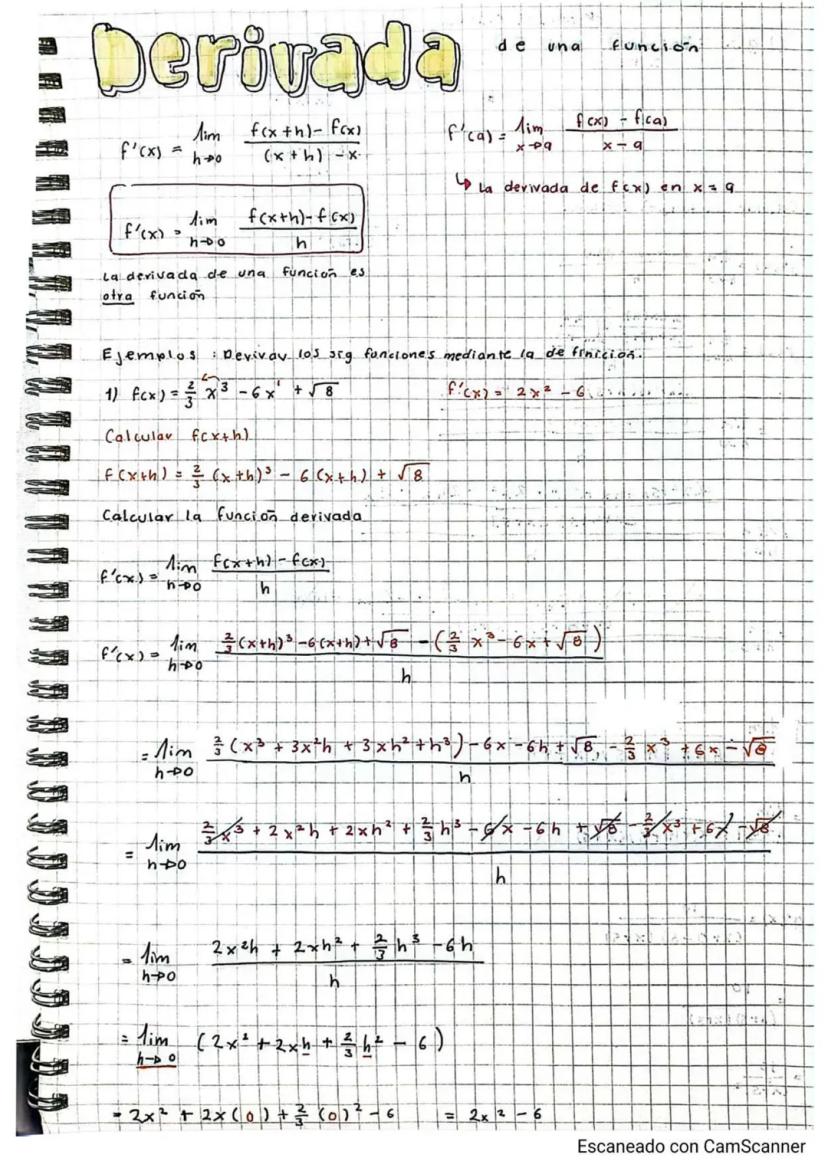 Derivada de una función
f'(x) = lim h→0 f(x+h) - f(x) / (x+h) - x
f'(a) = lim x→a f(x) - f(a) / x - a
↳ La derivada de f(x) en x = a
f'(x) = lim h→0 f(x+h) - f(x) / h
La derivada de una función es
otra función
Ejemplos : Derivar los sig funciones mediante la definición.
1) f(x) = 2/3 x³ - 6x¹ + √8
f'(x) = 2x² - 6
Calcular f(x+h)
f(x+h) = 2/3 (x+h)³ - 6(x+h) + √8
Calcular la función derivada
f'(x) = lim h→0 f(x+h) - f(x) / h
f'(x) = lim h→0 2/3(x+h)³ - 6(x+h) + √8 - (2/3 x³ - 6x + √8) / h
= lim h→0 2/3 (x³ + 3x²h + 3xh² + h³) - 6x - 6h + √8 - 2/3 x³ + 6x - √8 / h
= lim h→0 2/3 x³ + 2x²h + 2xh² + 2/3 h³ - 6x - 6h + √8 - 2/3 x³ + 6x - √8 / h
= lim h→0 2x²h + 2xh² + 2/3 h³ - 6h / h
= lim h→0 (2x² + 2xh + 2/3 h² - 6)
= 2x² + 2x(0) + 2/3 (0)² - 6 = 2x² - 6
Escaneado con CamScanner